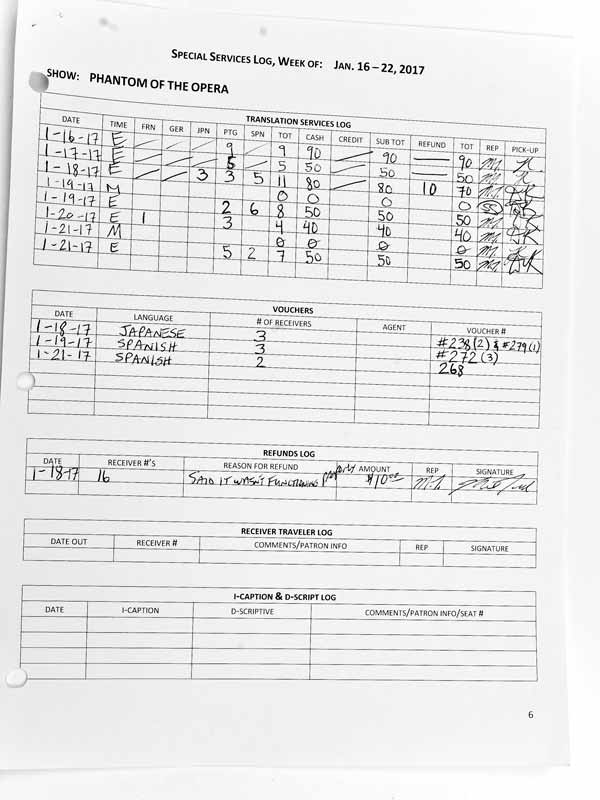 SPECIAL SERVICES LOG, WEEK OF: JAN. 16 – 22, 2017
SHOW: PHANTOM OF THE OPERA
TRANSLATION SERVICES LOG
DATE TIME FRN GER JPN PTG SPN TOT CASH CREDIT SUB TOT REFUND TOT REP PICK-UP
1-16-17 E 9 9 90 90 90
1-17-17 E 5 5 50 50 50
1-18-17 E 3 3 5 11 80 80 10 70
1-19-17 M 0 0 0 0 SS
1-19-17 E 2 6 8 50 50 50
1-20-17 E 1 3 4 40 40 40
1-21-17 M 0 0 0 0
1-21-17 E 5 2 7 50 50 50
VOUCHERS
DATE LANGUAGE # OF RECEIVERS AGENT VOUCHER #
1-18-17 JAPANESE 3 #238(2) & #279(1)
1-19-17 SPANISH 3 #272(3)
1-21-17 SPANISH 2 268
REFUNDS LOG
DATE RECEIVER #'S REASON FOR REFUND AMOUNT REP SIGNATURE
1-18-17 16 SAID IT WASN'T FUNCTIONING properly $10.00
RECEIVER TRAVELER LOG
DATE OUT RECEIVER # COMMENTS/PATRON INFO REP SIGNATURE
I-CAPTION & D-SCRIPT LOG
DATE I-CAPTION D-SCRIPTIVE COMMENTS/PATRON INFO/SEAT #
6